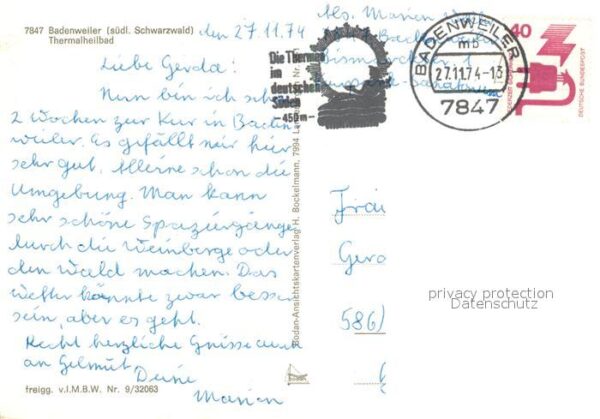 7847 Badenweiler (südl. Schwarzwald)
Thermalheilbad
den 27.11.74
Abs. Marion
Liebe Gerda!
Nun bin ich schon
2 Wochen zur Kur in Baden
weiler. Es gefällt mir hier
sehr gut. Alleine schon die
Umgebung. Man kann
sehr schöne Spaziergänge
durch die Weinberge oder
den Wald machen. Das
Wetter könnte zwar besser
sein, aber es geht.
Recht herzliche Grüsse auch
an Helmut. Deine
Marion
freigg. v.I.M.B.W. Nr. 9/32063
Bodan-Ansichtskartenverlag H. Bockelmann, 7994
Die Thermen
im
deutschen
Süden
-450m-
BADENWEILER
mb
27.11.74-13
7847
40
DEUTSCHE BUNDESPOST
Gerd
586
privacy protection
Datenschutz